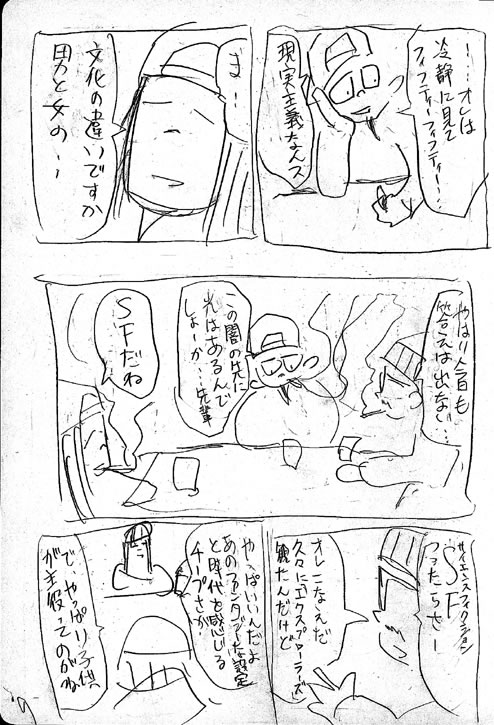 !…オレは
冷静に見て
フィフティーフィフティー!…
現実主義なんス
ま…
文化の違いですか
男と女の…
やはり今日も
答えは出ない…
この闇の先に
光はあるんで
しょーか…先輩
SFだね
サイエンスフィクション
SF
つったらさー
オレこないだ
久々に『エクスプローラーズ』
観たんだけど
やっぱいいんだよ
あのファンタジーな設定
と時代を感じる
チープさが
で、やっぱり子供
が主役ってのがね
'9